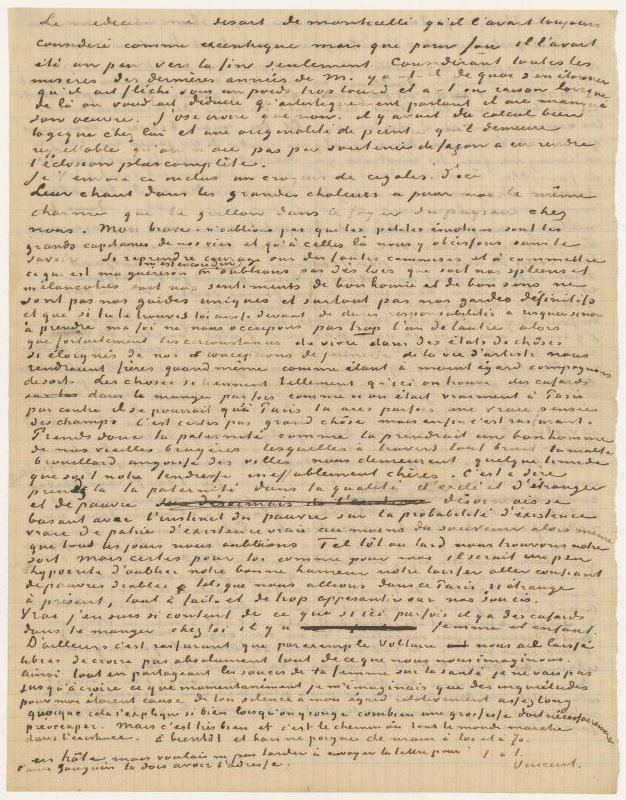 Le médecin me disait de monticelli qu'il l'avait toujours
consideré comme excentrique mais que pour fou il l'avait
été un peu vers la fin seulement. Considérant toutes les
misères des dernières années de M. y a-t-il de quoi s'en étonner
qu'il ait fléchi sous un poids trop lourd et a-t-on raison lorsque
de là on voudrait déduire qu'artistiquement parlant il ait manqué
son oeuvre. J'ose croire que non. il y avait du calcul bien
logique chez lui et une originalité de peintre qu'il demeure
regrettable qu'on n'aie pas pu soutenir de façon à en rendre
l'éclosion plus complète.
Je t'envoie ci inclus un croquis de cigales d'ici
Leur chant dans les grandes chaleurs a pour moi le même
charme que le grillon dans le foyer du paysan chez
nous. Mon brave – n'oublions pas que les petites émotions sont les
grands capitaines de nos vies et qu'à celles là nous y obéissons sans le
savoir. Si reprendre courage sur des fautes commises et à commettre
ce qui est ma guérison m'est encore dur n'oublions pas dès lors que soit nos spleens et
mélancolies soit nos sentiments de bonhomie et de bon sens ne
sont pas nos guides uniques et surtout pas nos gardes définitifs
et que si tu te trouves toi aussi devant de dures responsabilités à risquer sinon
à prendre ma foi ne nous occupons pas trop l'un de l'autre alors
que fortuitement les circonstances de vivre dans des états de choses
si éloignés de nos conceptions de jeunesse de la vie d'artiste nous
rendraient frères quand même comme étant à maint égard compagnons
de sort. Les choses se tiennent tellement qu'ici on trouve des cafards
dans le manger parfois comme si on était vraiment à Paris
par contre il se pourrait qu'à Paris tu aies parfois une vraie pensée
des champs C'est certes pas grand chôse mais enfin c'est rassurant.
Prends donc ta paternité comme la prendrait un bonhomme
de nos vieilles bruyères lesquelles à travers tout bruit tumulte
brouillard angoisse des villes nous demeurent quelque timide
que soit notre tendresse ineffablement chères. C'est à dire
prends là ta paternité dans ta qualité d'exilé et d'étranger
et de pauvre désormais se
basant avec l'instinct du pauvre sur la probabilité d'existence
vraie de patrie d'existence vraie au moins du souvenir alors même
que tous les jours nous oublions Tel tôt ou tard nous trouvons notre
sort mais certes pour toi comme pour moi il serait un peu
hypocrite d'oublier notre bonne humeur notre laisser aller confiant
de pauvres diables lorsque nous allions dans ce Paris si étrange
à présent, tout à fait et de trop appesantir sur nos soucis.
Vrai j'en suis si content de ce que si ici parfois il y a des cafards
dans le manger chez toi il y a femme et enfant.
D'ailleurs c'est rassurant que par exemple Voltaire nous ait laissé
libres de croire pas absolument tout de ce que nous nous imaginons.
Ainsi tout en partageant les soucis de ta femme sur ta santé je ne vais pas
jusqu'à croire ce que momentanément je m'imaginais que des inquiétudes
pour moi étaient cause de ton silence à mon égard relativement assez long
quoique cela s'explique si bien lorsqu'on songe combien une grossesse doit nécessairement
préoccuper. Mais c'est très bien et c'est le chemin où tout le monde marche
dans l'existence. à bientôt et bonne poignée de main à toi et à Jo.
en hâte mais voulais ne pas tarder à envoyer la lettre pour t. à t.
l'ami Gauguin tu dois avoir l'adresse. Vincent.